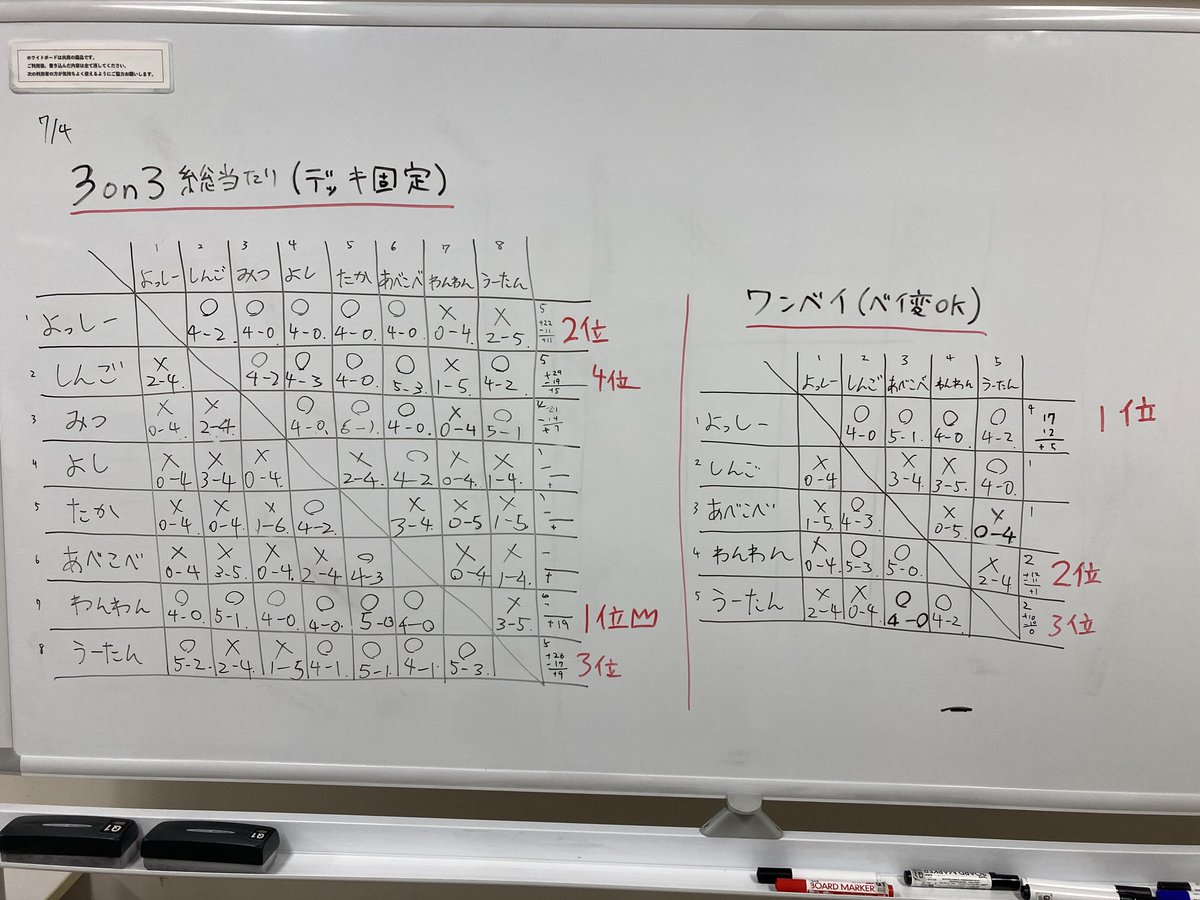 ホワイトボードは共用の備品です。
ご利用後、書き込んだ内容は全て消してください。
次の利用者の方が気持ちよく使えるようにご協力お願いします。
7/4
3on3 総当たり(デッキ固定)
1 2 3 4 5 6 7 8
よっしー しんご みつ よし たか あべこべ わんわん うーたん
1 よっしー ○ 4-2 ○ 4-0 ○ 4-0 ○ 4-0 ○ 4-0 × 0-4 × 2-5 5 +22 -11 +11 2位
2 しんご × 2-4 ○ 4-2 ○ 4-3 ○ 4-0 ○ 5-3 × 1-5 ○ 4-2 5 +24 -19 +5 4位
3 みつ × 0-4 × 2-4 ○ 4-0 ○ 6-1 ○ 4-0 × 0-4 ○ 5-1 4 +21 -14 +7
4 よし × 0-4 × 3-4 × 0-4 × 2-4 ○ 4-2 × 0-4 × 1-4 1 - +
5 たか × 0-4 × 0-4 × 1-6 ○ 4-2 × 3-4 × 0-5 × 1-5 1 - +
6 あべこべ × 0-4 × 3-5 × 0-4 × 2-4 ○ 4-3 × 0-4 × 1-4 - +
7 わんわん ○ 4-0 ○ 5-1 ○ 4-0 ○ 4-0 ○ 5-0 ○ 4-0 × 3-5 6 - +19 1位
8 うーたん ○ 5-2 × 2-4 × 1-5 ○ 4-1 ○ 5-1 ○ 4-1 ○ 5-3 5 +26 -17 +9 3位
ワンベイ(ベイ変OK)
1 2 3 4 5
よっしー しんご あべこべ わんわん うーたん
1 よっしー ○ 4-0 ○ 5-1 ○ 4-0 ○ 4-2 4 17 12 +5 1位
2 しんご × 0-4 × 3-4 × 3-5 ○ 4-0 1
3 あべこべ × 1-5 ○ 4-3 × 0-5 × 0-4 1
4 わんわん × 0-4 ○ 5-3 ○ 5-0 × 2-4 2 +12 -11 +1 2位
5 うーたん × 2-4 × 0-4 ○ 4-0 ○ 4-2 2 +10 -10 0 3位
BOARD MARKER